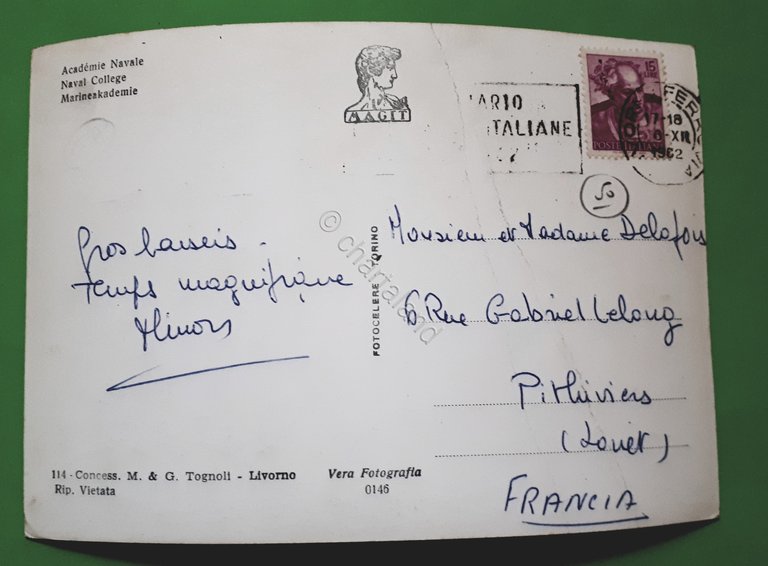 Académie Navale
Naval College
Marineakademie
MAGIT
ARIO
ITALIANE
15
LIRE
POSTE ITALIANE
FERROVIA
17-18
6-XII
1962
50
Gros baisers -
temps magnifique
Monsieur et Madame Delafoix
6 Rue Gabriel Lelong
Pithiviers
(Loiret)
FRANCIA
© chartaland
FOTOCELERE TORINO
114 - Concess. M. & G. Tognoli - Livorno
Rip. Vietata
Vera Fotografia
0146